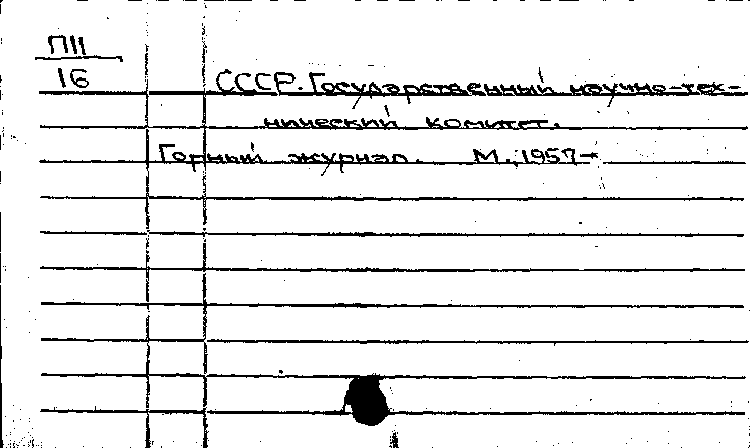 П11
16
СССР. Государственный научно-тех-
нический комитет.
Горный журнал. М., 1957-